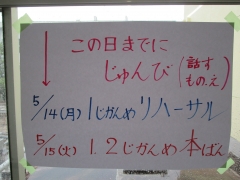 この日までに
じゅんび(話すもの.え)
5/14(月) 1じかんめ リハーサル
5/15(火) 1.2じかんめ 本ばん